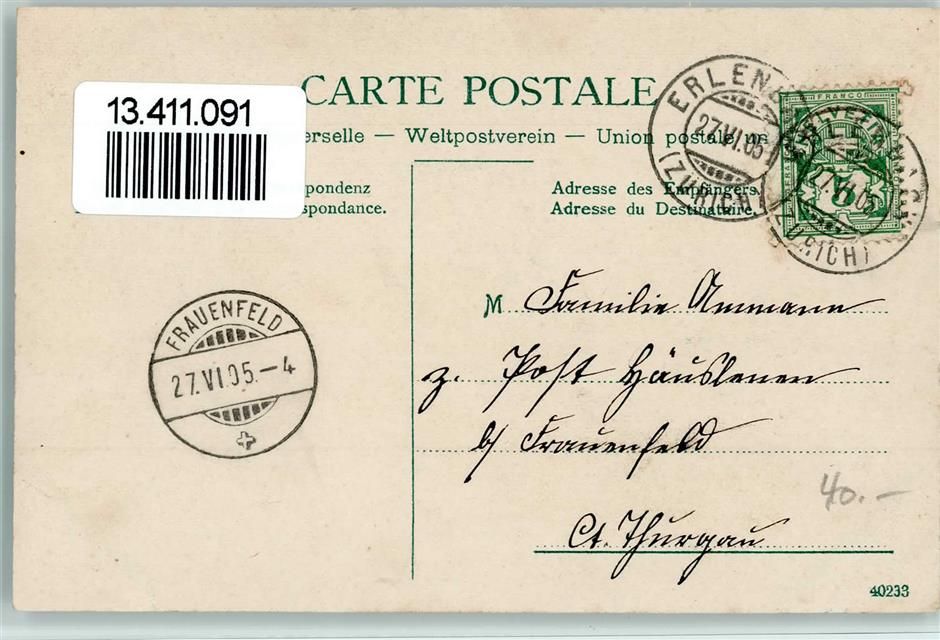 13.411.091
CARTE POSTALE
erselle — Weltpostverein — Union postale un
pondenz
spondance.
Adresse des Empfängers.
Adresse du Destinataire.
ERLEN
27.VI.05
(ZÜRICH)
FRANCO
HELVETIA
5
VI.05
(ZÜRICH)
FRAUENFELD
27.VI.05.–4
M Familie Ammann
z. Post Häuslenen
b/ Frauenfeld
Ct. Thurgau
40.–
40233